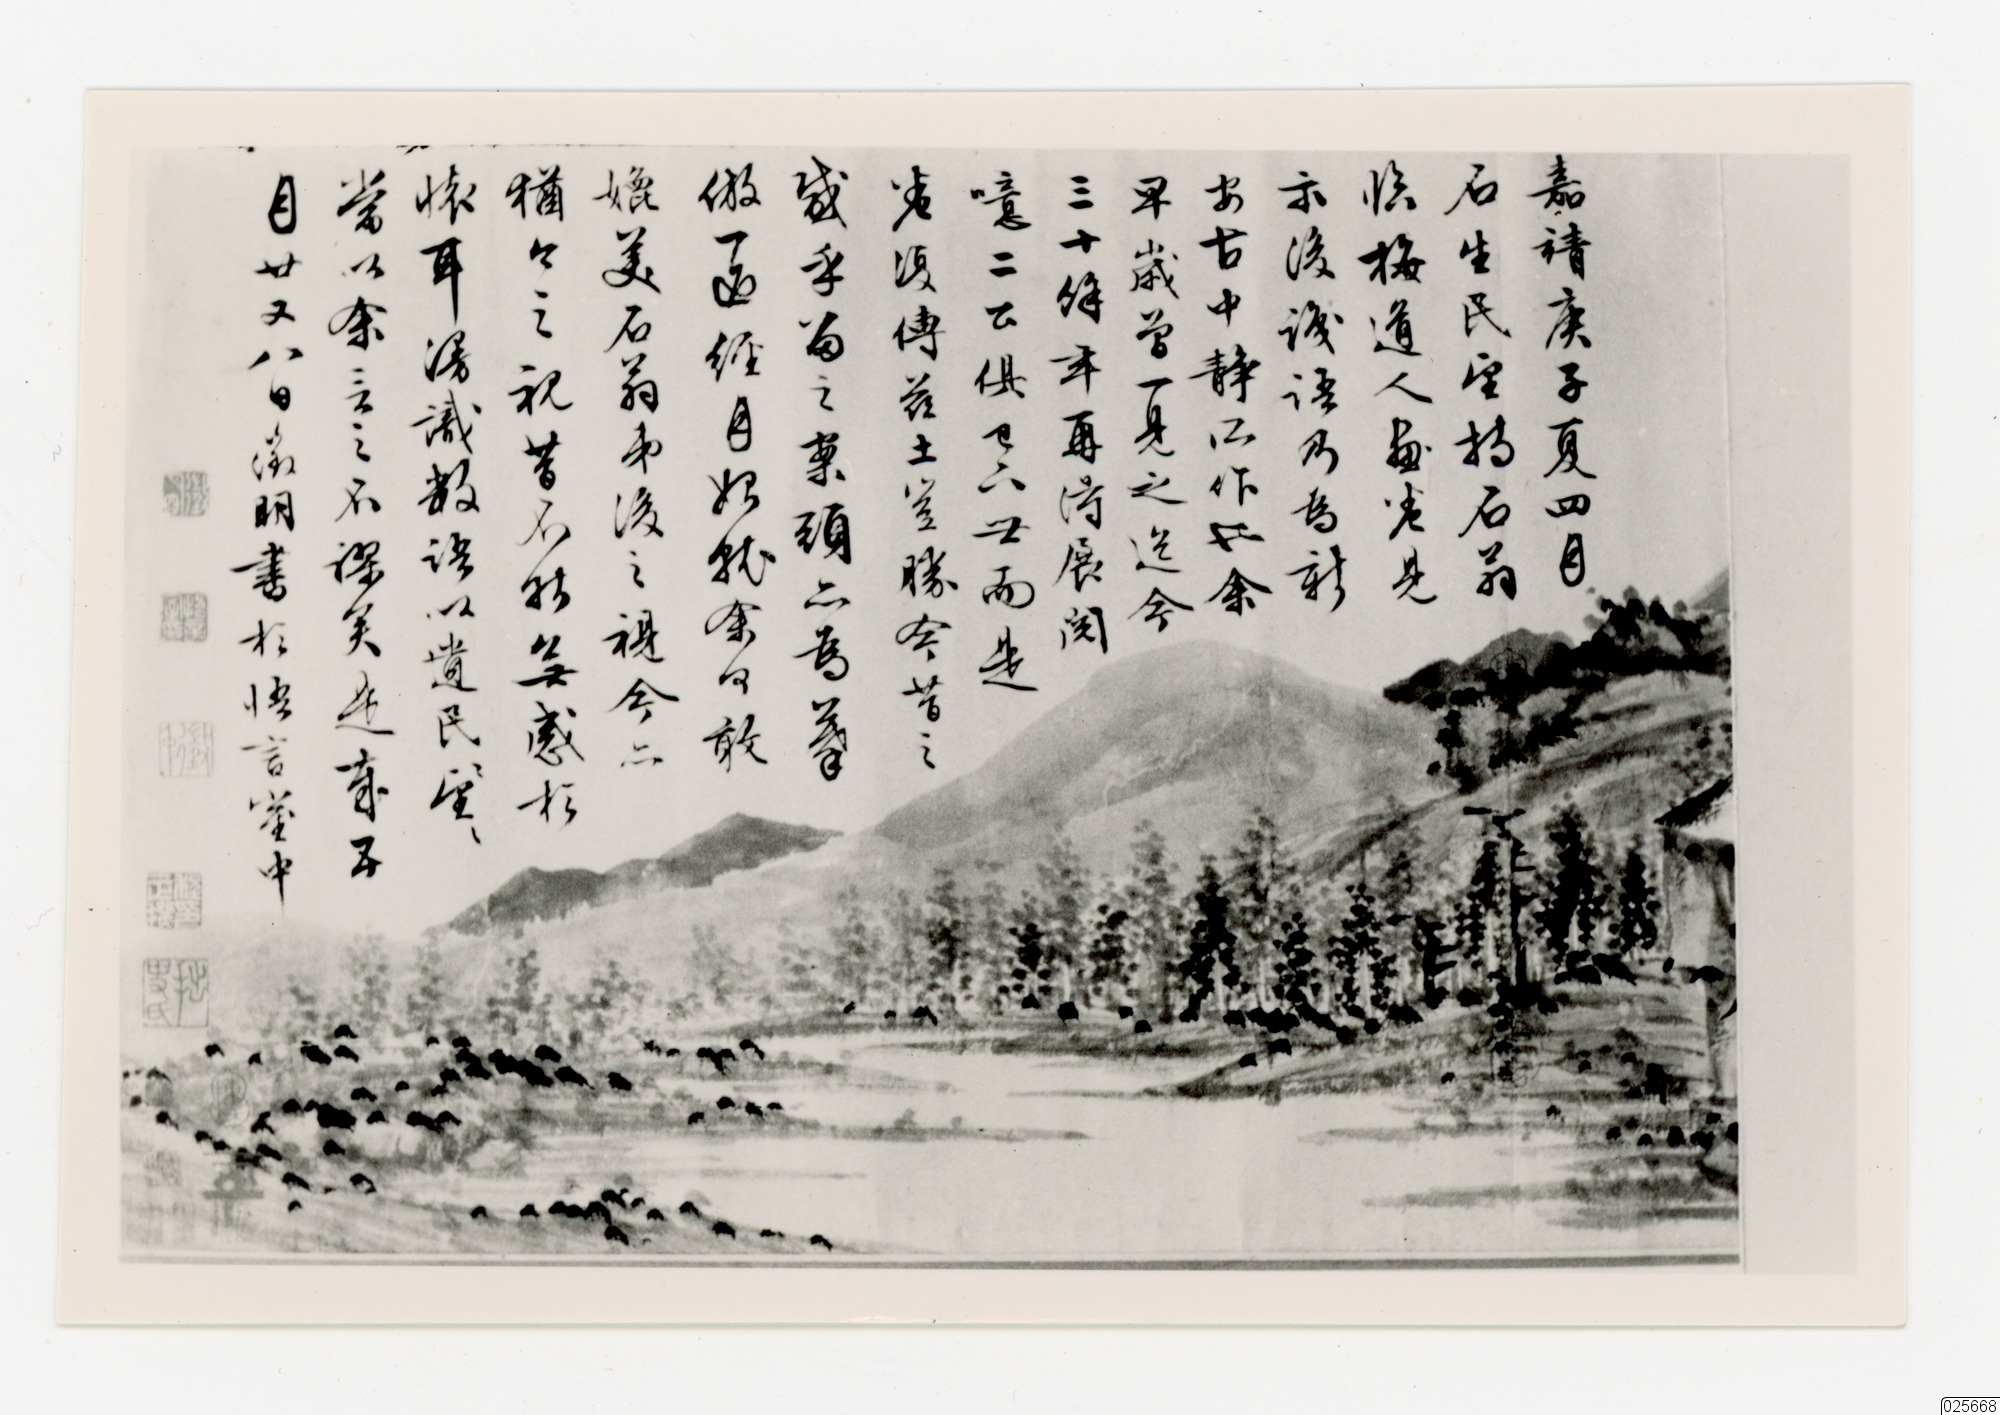 嘉靖庚子夏四月
石生民望持石翁
臨梅道人畫卷見
示後識語乃為新
安古中靜所作也余
早歲曾一見之迄今
三十餘年再得展閱
噫二公俱已下世而是
卷復傳茲土豈勝今昔之
感乎為之
經目如就余何敢
媿美石翁第後之視今亦
猶今之視昔不能無感於
懷耳漫識數語以遺民望民望
當以余言之不謬矣是歲五
月廿又八日徵明書於悟言室中
025668